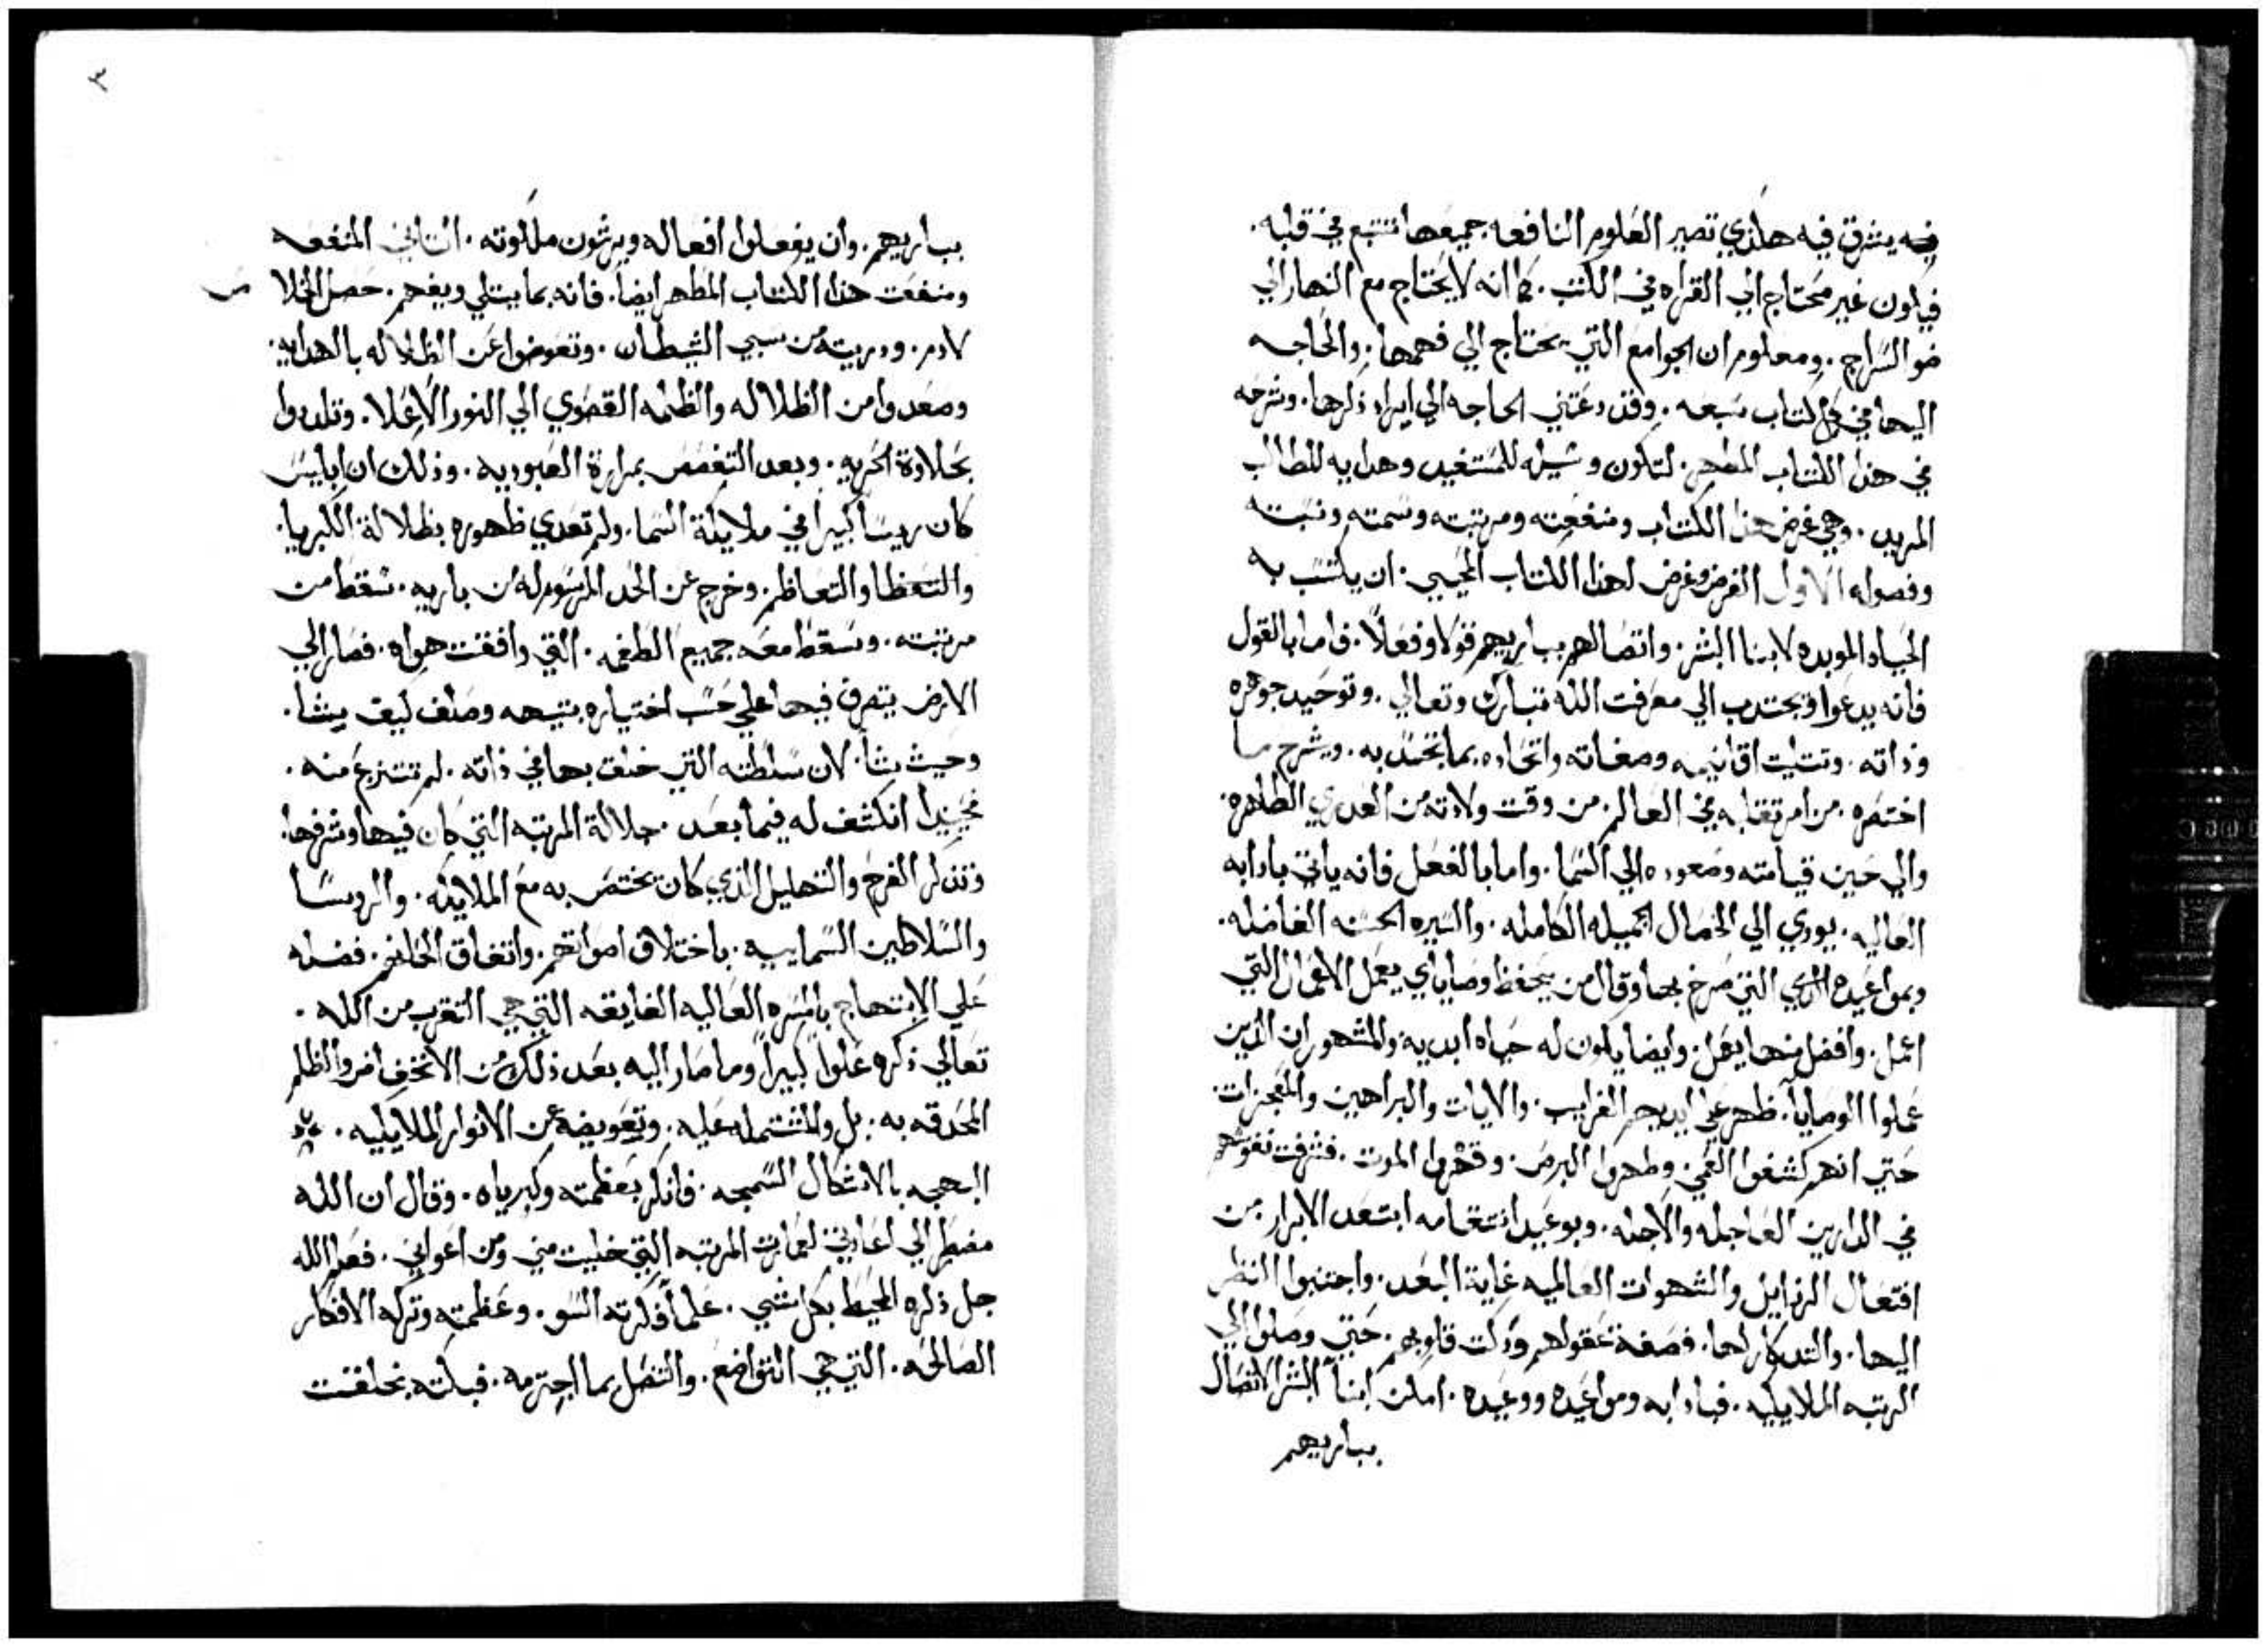 فيه يشرق فيه هكذي تصير العلوم النافعه جميعها تتبع في قلبه.
فيكون غير محتاج الي القراه في الكتب. كما انه لا يحتاج مع النهار الي
ضو السراج. ومعلوم ان الجوامع التي يحتاج الي فهمها. والحاجه
اليها في كل كتاب سبعه. وقد دعتني الحاجه الي ايراد ذكرها. وشرحه
في هذا الكتاب المطهر. لتكون وسيله للمستفيد وهدايه للطالب
المريد. وهي غرض هذا الكتاب ومنفعته ومرتبته وسمته ونسبته
وفصوله الاول الغرض وغرض لهذا الكتاب المحيي. ان يكتسب به
الحياه الموبده لابنا البشر. واتصالهم بباريهم قولا وفعلاً. فاما بالقول
فانه يدعوا ويجتدب الي معرفت الله تبارك وتعالي. وتوحيد جوهره
وذاته. وتتليت اقانيمه وصفاته واتحاده بما اتحد به. ويشرح ما
اختصره من امر تقلبه في العالم. من وقت ولادته من العدري الطاهره.
والي حين قيامته وصعوده الي السما. واما بالفعل فانه ياتي بادابه
العاليه. يودي الي الخصال الجميله الكامله. والسيره الحسنه الفاضله.
وبمواعيده الذي التي صرخ بها وقال من يحفظ وصاياي يعمل الاعمال التي
اعمل. وافضل منها يفعل. وايضا يكون له حياه ابديه والمشهور ان الذين
عملوا الوصايا. ظهر علي ايديهم الغرايب. والايات والبراهين والمعجزات.
حتي انهم كشفوا العمي وطهروا البرص. وقهروا الموت. فشرفت نفوسهم
في الدارين العاجله والاجله. وبوعيد انتقامه ابتعد الابرار من
افتعال الرذايل والشهوات العالميه غاية البعد. واجتنبوا النظر
اليها. والتدكار لها. فصفة عقولهم وذكت قلوبهم. حتي وصلوا الي
الرتبه الملايكيه. فبادابه ومواعيده ووعيده. امكن ابنا البشر الاتصال
بباريهم
٣
بباريهم. وان يفعلوا افعاله ويرثون ملكوته. الثاني المنفعه
ومنفعت هذا الكتاب المطهر ايضا. فانه بما يتلي ويفهم. حصل الخلاص
لادم. ودريته من سبي الشيطان. وتعوضوا عن الظلاله بالهدايه.
وصعدوا من الظلاله والظلمه القصوي الي النور الاعلا. وتلددوا
بحلاوة الحريه. وبعد التغصص بمرارة العبوديه. وذلك ان ابليس
كان ريسا كبيرا في ملايكة السما. ولم تعدي ظهوره بظلالة الكبريا.
والتعظا والتعاظم. وخرج عن الحد المرسوم له من باريه. سقط من
مرتبته. وسقط معه جميع الطغمه. التي وافقت هواه. فصار الي
الارض يتصرف فيها علي حسب اختياره بتيهه وصلف كيف يشا.
وحيث يشا. لان سلطته التي خلق بها في ذاته. لم تنتزع منه.
فحينيدا انكشف له فيما بعد. جلالة المرتبه التي كان فيها وشرفها.
وتذكر الفرح والتهليل الذي كان يختص به مع الملايكه. والروسا
والسلاطين السماييه. باختلاف اصواتهم. واتفاق الحانهم. فضله
علي الابتهاج بالمسره العاليه الفايقه التي هي التقرب من الله.
تعالي ذكره علوا كبيرا وما صار اليه بعد ذلك من الانخفاض والظلم
المحدقه به. بل والمشتمله عليه. وتعويضه عن الانوار الملايكيه.
البهجه بالاشكال السمجه. فانكر بعظمته وكبرياه. وقال ان الله
مضطر الي اعادتي لعمارت المرتبه التي خليت مني ومن اعواني. فعلم الله
جل ذكره المحيط بكل شي. علما فكرته السو. وعظمته وتركه الافكار
الصالحه. التي هي التواضع. والتنصل بما اجترمه. فبكته بخلقت